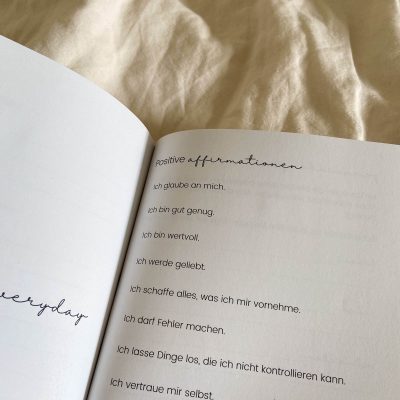 everyday
Positive affirmationen
Ich glaube an mich.
Ich bin gut genug.
Ich bin wertvoll.
Ich werde geliebt.
Ich schaffe alles, was ich mir vornehme.
Ich darf Fehler machen.
Ich lasse Dinge los, die ich nicht kontrollieren kann.
Ich vertraue mir selbst.